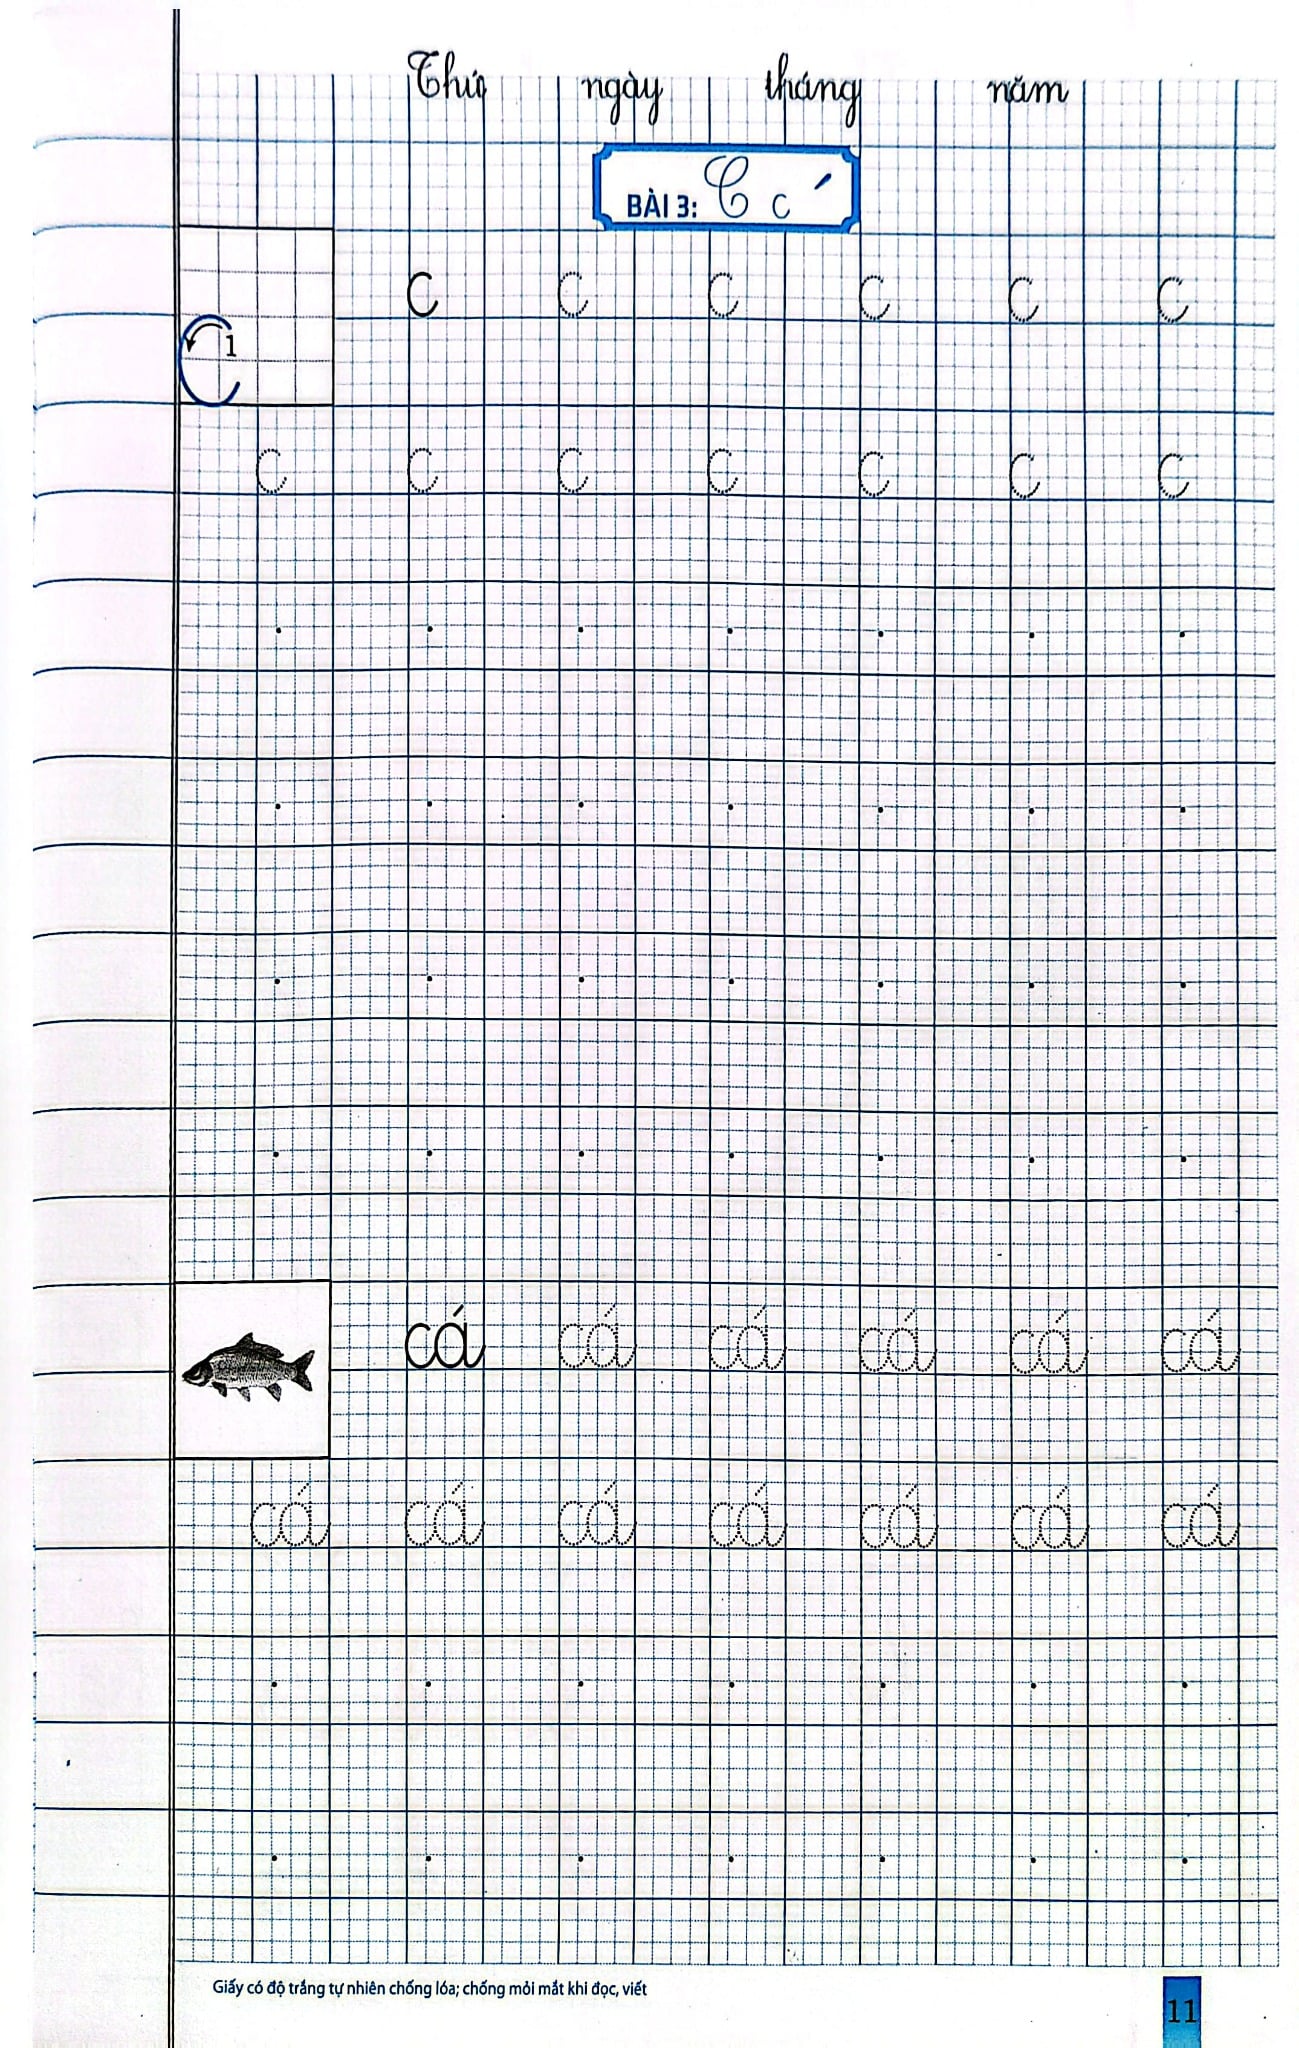 Thứ ngày tháng năm
BÀI 3: C c ´
c c c c c c
1
c c c c c c c
cá cá cá cá cá cá
cá cá cá cá cá cá cá
Giấy có độ trắng tự nhiên chống lóa; chống mỏi mắt khi đọc, viết
11